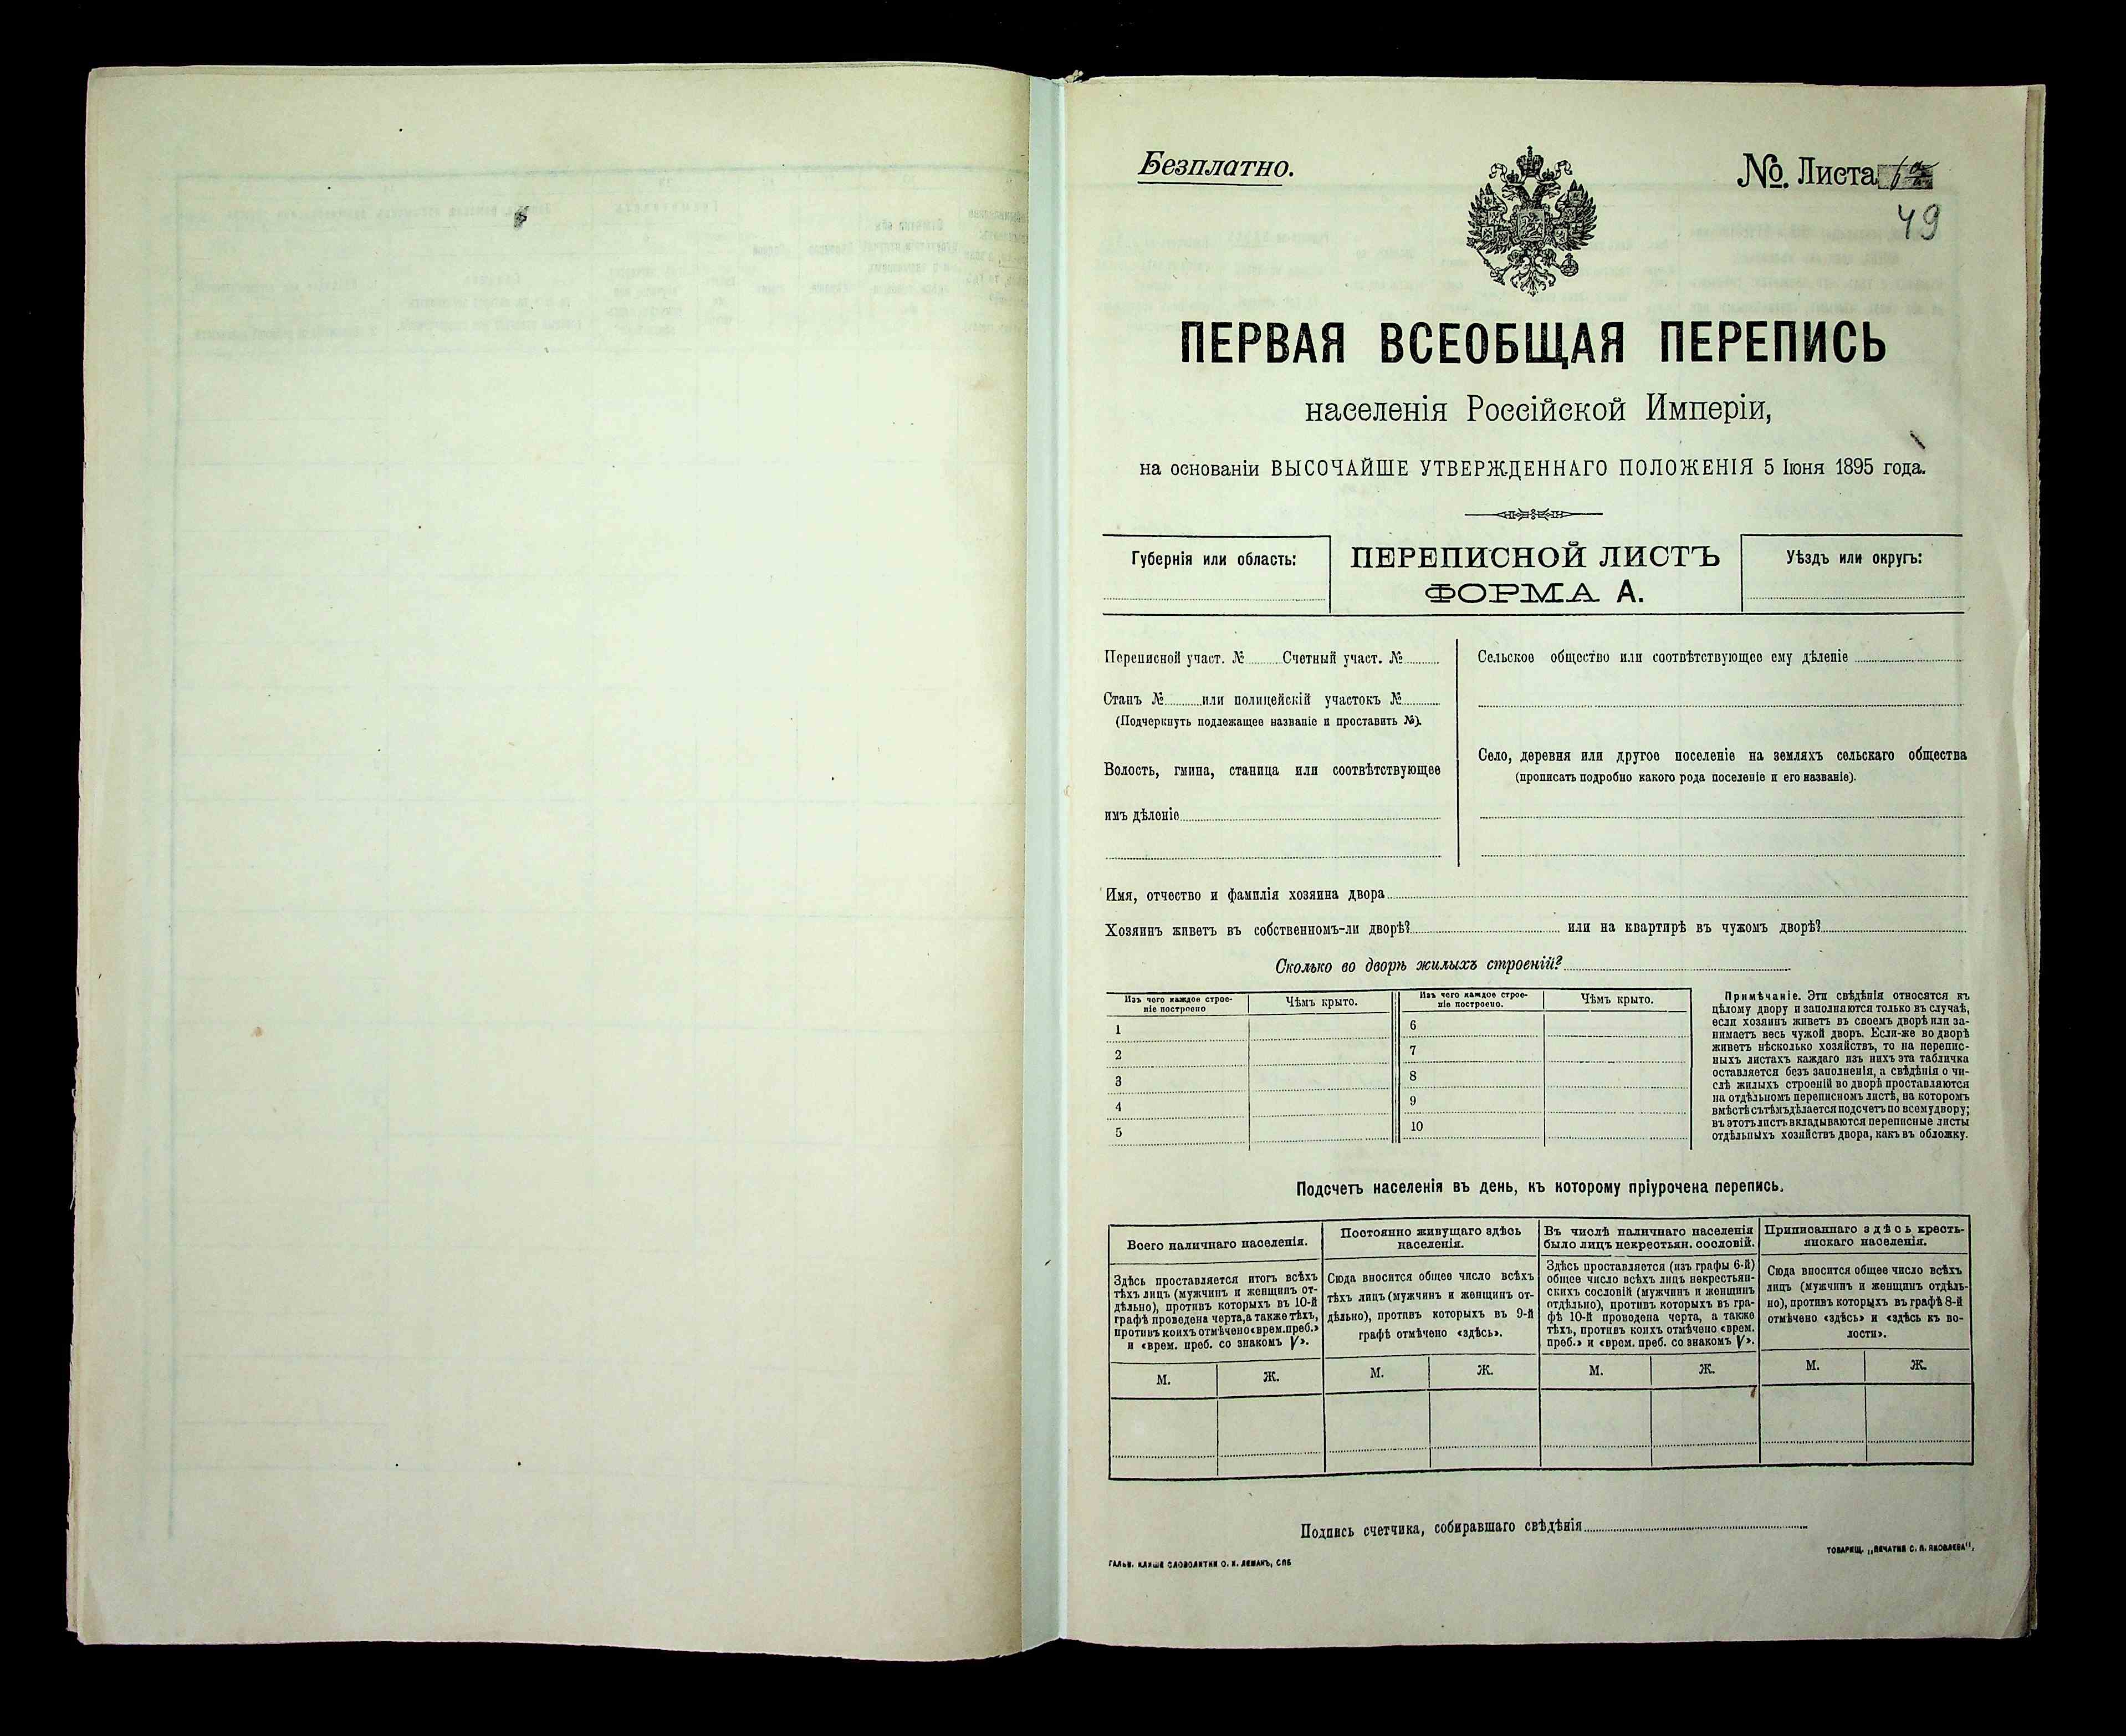 Безплатно.
№. Листа
49
ПЕРВАЯ ВСЕОБЩАЯ ПЕРЕПИСЬ
населенія Россійской Имперіи,
на основаніи ВЫСОЧАЙШЕ УТВЕРЖДЕННАГО ПОЛОЖЕНІЯ 5 Іюня 1895 года.
Губернія или область:
ПЕРЕПИСНОЙ ЛИСТЪ
ФОРМА А.
Уѣздъ или округъ:
Переписной участ. № Счетный участ. №
Станъ № или полицейскій участокъ №
(Подчеркнуть подлежащее названіе и проставить №).
Волость, гмина, станица или соотвѣтствующее
имъ дѣленіе
Сельское общество или соотвѣтствующее ему дѣленіе
Село, деревня или другое поселеніе на земляхъ сельскаго общества
(прописать подробно какого рода поселеніе и его названіе).
Имя, отчество и фамилія хозяина двора
Хозяинъ живетъ въ собственномъ-ли дворѣ? или на квартирѣ въ чужомъ дворѣ?
Сколько во дворѣ жилыхъ строеній?
Изъ чего каждое строе-
ніе построено
Чѣмъ крыто.
1
2
3
4
5
Изъ чего каждое строе-
ніе построено.
Чѣмъ крыто.
6
7
8
9
10
Примѣчаніе. Эти свѣдѣнія относятся къ
цѣлому двору и заполняются только въ случаѣ,
если хозяинъ живетъ въ своемъ дворѣ или за-
нимаетъ весь чужой дворъ. Если-же во дворѣ
живетъ нѣсколько хозяйствъ, то на перепис-
ныхъ листахъ каждаго изъ нихъ эта табличка
оставляется безъ заполненія, а свѣдѣнія о чи-
слѣ жилыхъ строеній во дворѣ проставляются
на отдѣльномъ переписномъ листѣ, на которомъ
вмѣстѣ сътѣмъ дѣлается подсчетъ по всему двору;
въ этотъ листъ вкладываются переписные листы
отдѣльныхъ хозяйствъ двора, какъ въ обложку.
Подсчетъ населенія въ день, къ которому пріурочена перепись.
Всего наличнаго населенія.
Здѣсь проставляется итогъ всѣхъ
тѣхъ лицъ (мужчинъ и женщинъ от-
дѣльно), противъ которыхъ въ 10-й
графѣ проведена черта, а также тѣхъ,
противъ коихъ отмѣчено «врем. преб.»
и «врем. преб. со знакомъ V».
М. Ж.
Постоянно живущаго здѣсь
населенія.
Сюда вносится общее число всѣхъ
тѣхъ лицъ (мужчинъ и женщинъ от-
дѣльно), противъ которыхъ въ 9-й
графѣ отмѣчено «здѣсь».
М. Ж.
Въ числѣ наличнаго населенія
было лицъ некрестьян. сословій.
Здѣсь проставляется (изъ графы 6-й)
общее число всѣхъ лицъ некрестьян-
скихъ сословій (мужчинъ и женщинъ
отдѣльно), противъ которыхъ въ гра-
фѣ 10-й проведена черта, а также
тѣхъ, противъ коихъ отмѣчено «врем.
преб.» и «врем. преб. со знакомъ V».
М. Ж.
Приписаннаго здѣсь кресть-
янскаго населенія.
Сюда вносится общее число всѣхъ
лицъ (мужчинъ и женщинъ отдѣль-
но), противъ которыхъ въ графѣ 8-й
отмѣчено «здѣсь» и «здѣсь къ во-
лости».
М. Ж.
Подпись счетчика, собиравшаго свѣдѣнія
ГАЛЬВ. КЛИШЕ СЛОВОЛИТНИ О. И. ЛЕМАНЪ, СПБ
ТОВАРИЩ. „ПЕЧАТНЯ С. П. ЯКОВЛЕВА",